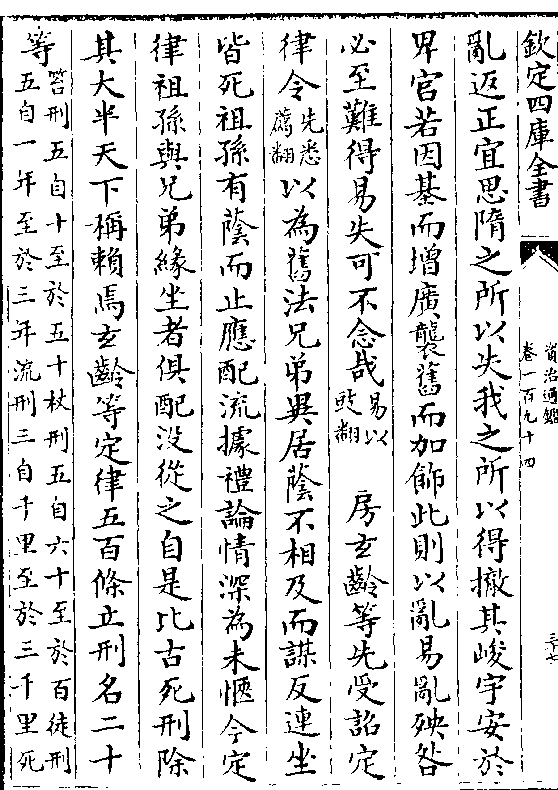 欽定四庫全書
資治通鑑
卷一百九十四
三十七
亂返正宜思隋之所以失我之所以得撤其峻宇安於
卑官若因基而增廣襲舊而加飾此則以亂易亂殃咎
必至難得易失可不念哉
易以
豉翻
房玄齡等先受詔定
律令
先悉
薦翻
以為舊法兄弟異居䕃不相及而謀反連坐
皆死祖孫有䕃而止應配流據禮論情深為未愜今定
律祖孫與兄弟緣坐者俱配没從之自是比古死刑除
其大半天下稱賴焉玄齡等定律五百條立刑名二十
等
笞刑五自十至於五十杖刑五自六十至於百徒刑
五自一年至於三年流刑三自千里至於三千里死